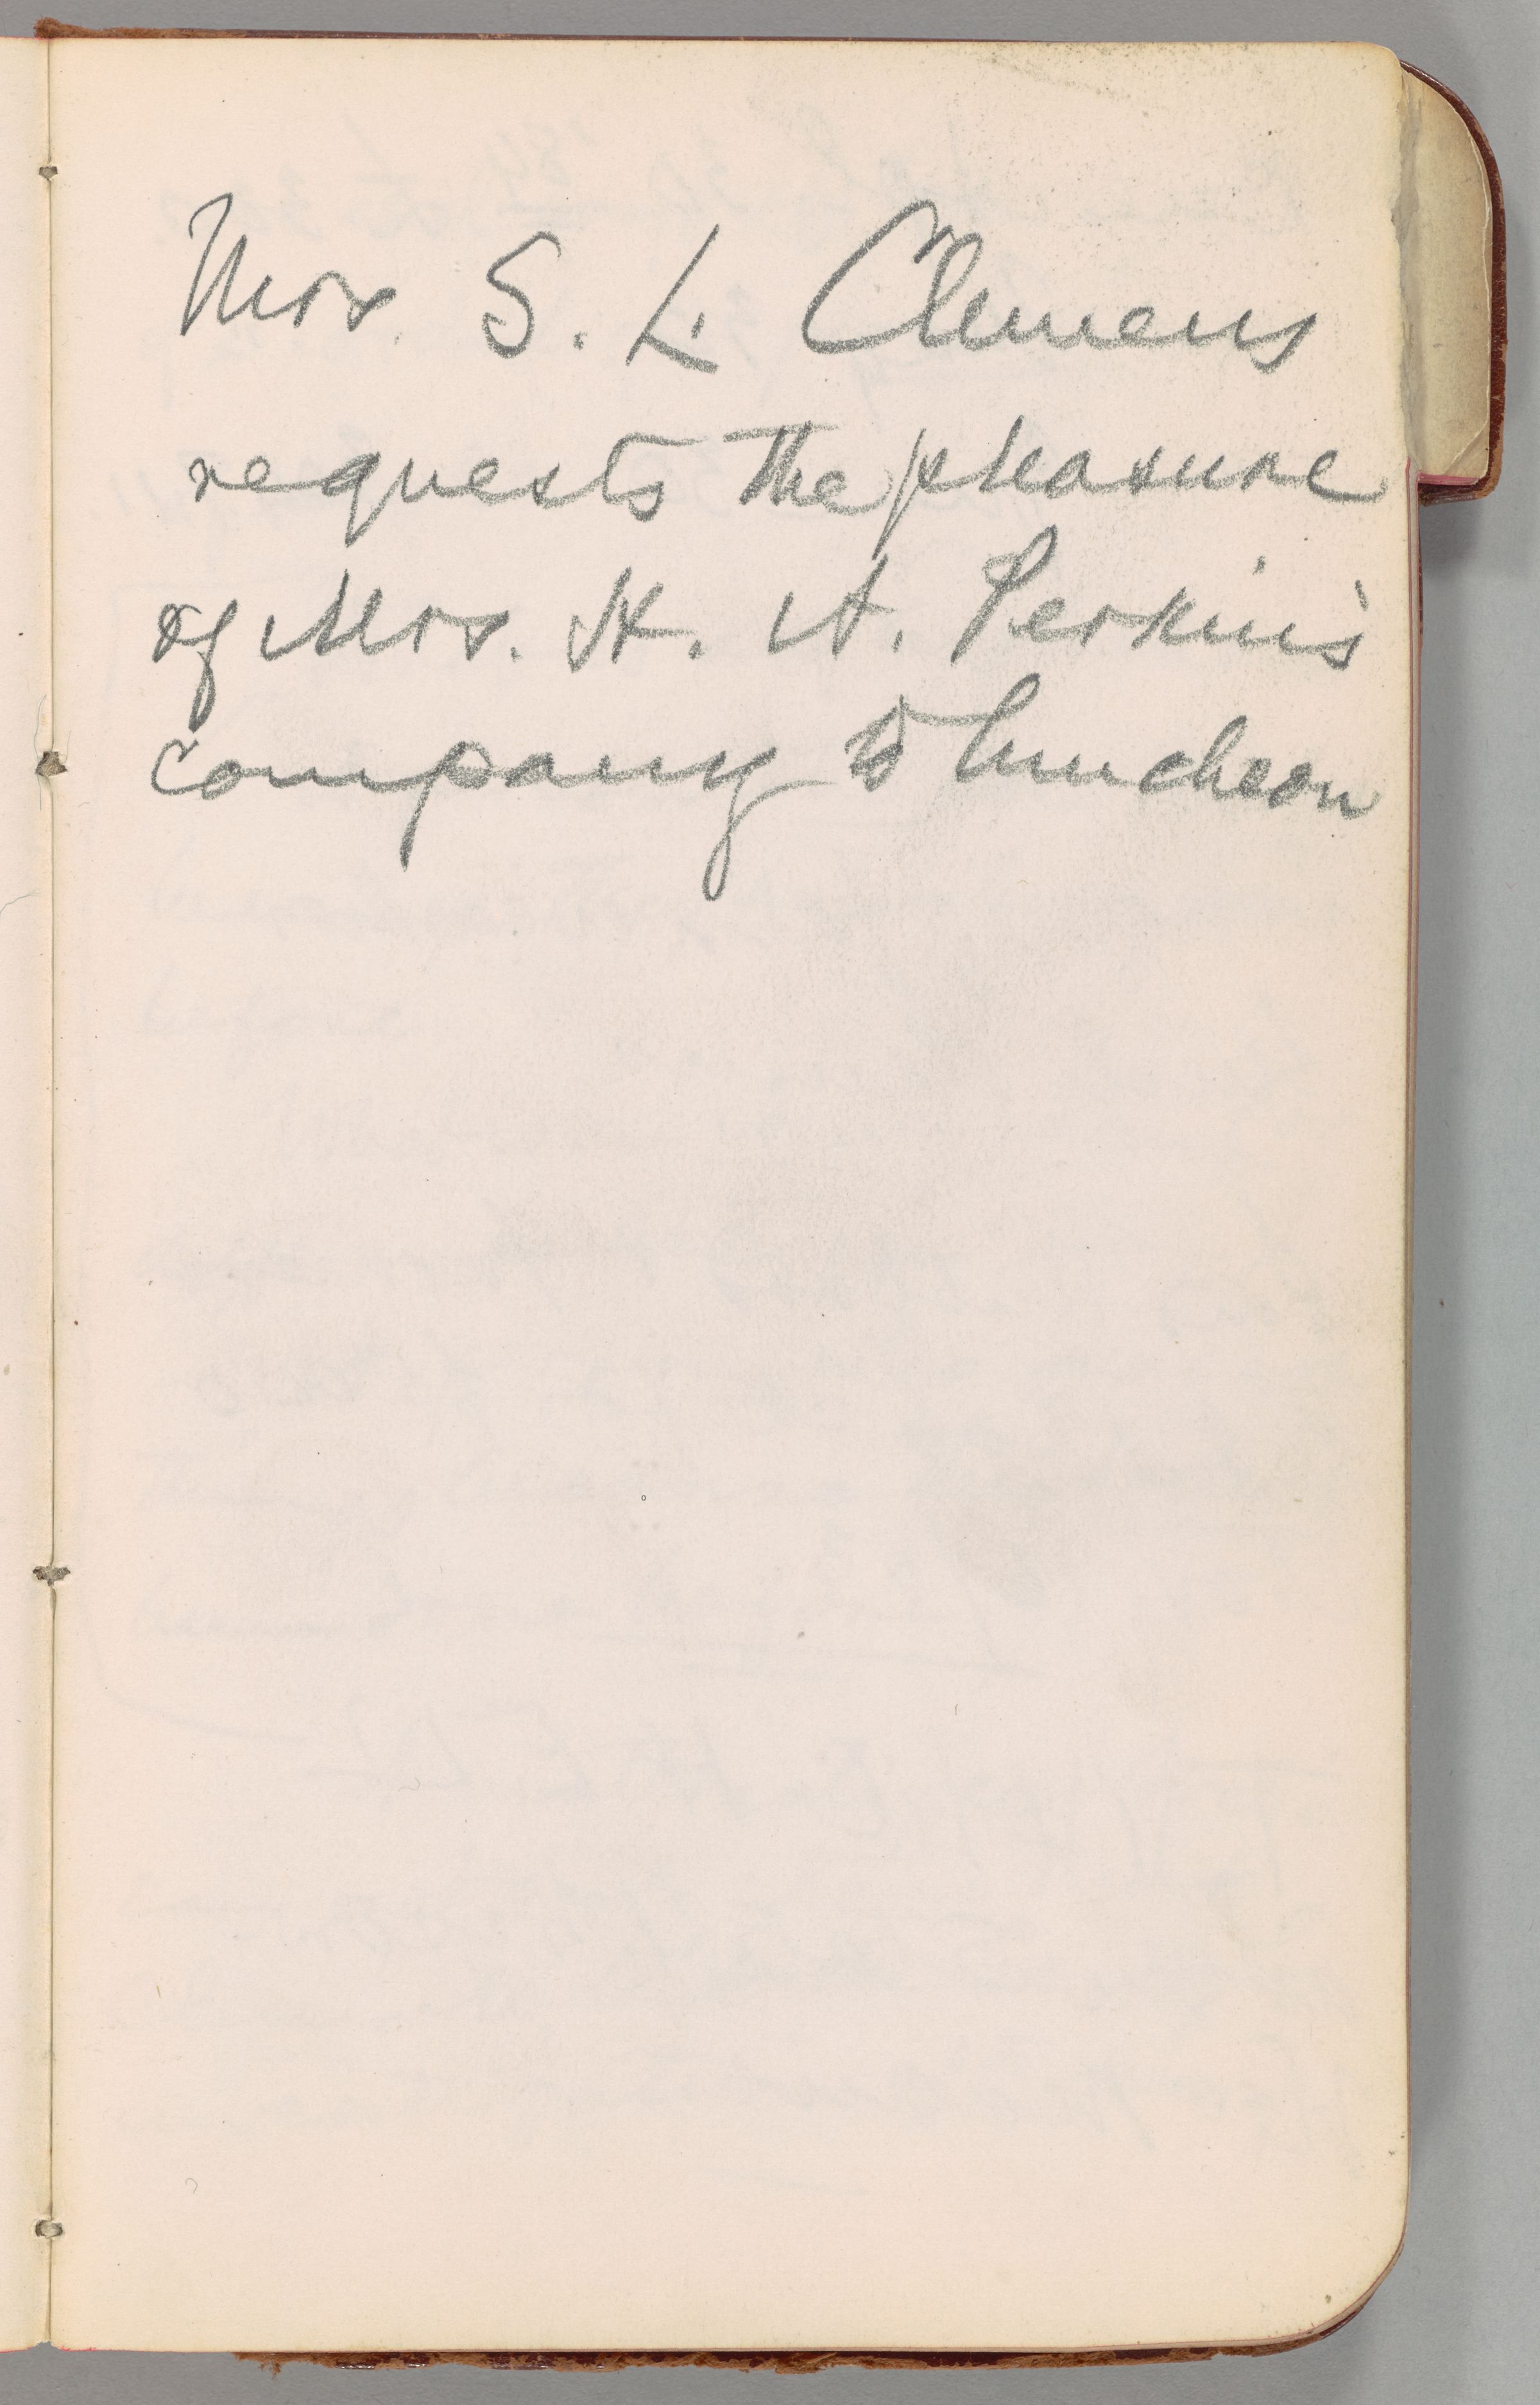 Mrs. S. L. Clemens
requests the pleasure
of Mrs. H. A. Perkins'
company to luncheon